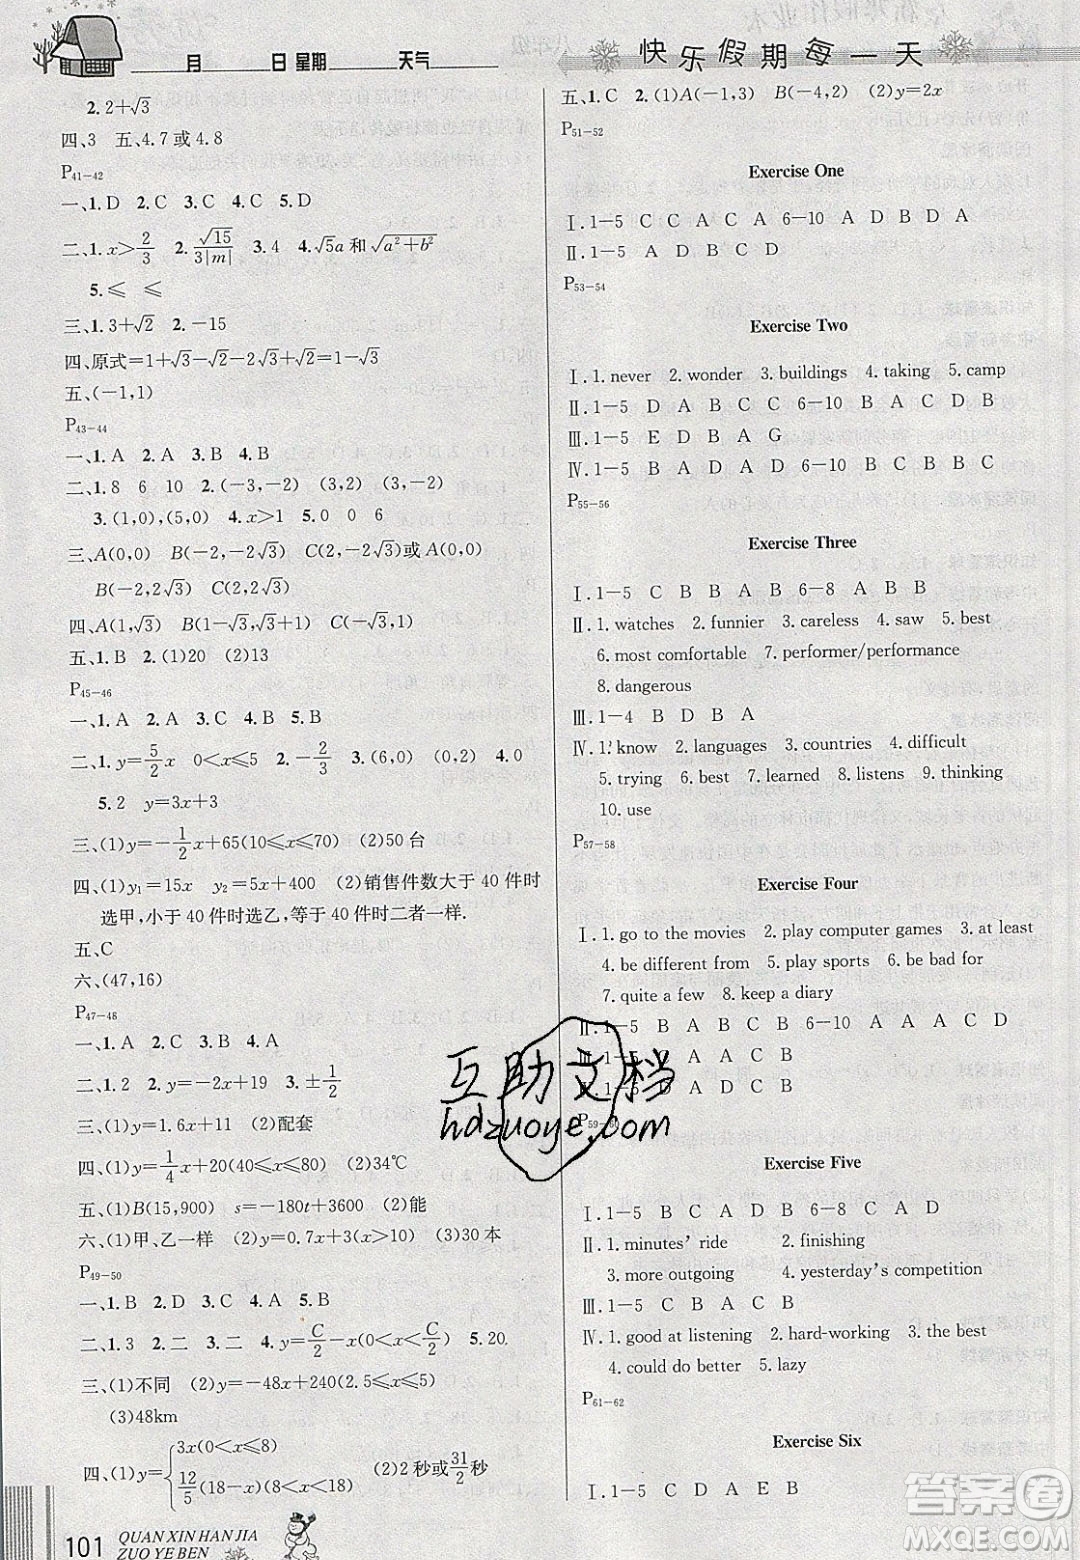 ____月____日 星期____天气____
快乐假期每一天
2. 2+√3
四、3 五、4.7 或 4.8
P41-42
一、1. D 2. C 3. C 4. C 5. D
二、1. x>2/3 2. √15/3|m| 3. 4 4. √5a 和 √(a²+b²)
5. ≤ ≤
三、1. 3+√2 2. -15
四、原式=1+√3-√2-2√3+√2=1-√3
五、(-1,1)
P43-44
一、1. A 2. A 3. B 4. B
二、1. 8 6 10 2. (-3,-2) (3,2) (3,-2)
3. (1,0),(5,0) 4. x>1 5. 0 0 6
三、A(0,0) B(-2,-2√3) C(2,-2√3)或A(0,0)
B(-2,2√3) C(2,2√3)
四、A(1,√3) B(1-√3,√3+1) C(-√3,1)
五、1. B 2. (1)20 (2)13
P45-46
一、1. A 2. A 3. C 4. B 5. B
二、1. y=5/2 x 0<x<5 2. -2/3 3. (6,0) (0,2) 4. 0
5. 2 y=3x+3
三、(1)y=-1/2 x+65(10≤x≤70) (2)50 台
四、(1)y₁=15x y₂=5x+400 (2)销售件数大于 40 件时
选甲,小于 40 件时选乙,等于 40 件时二者一样.
五、C
六、(47,16)
P47-48
一、1. A 2. C 3. B 4. A
二、1. 2 2. y=-x 3. ±1/2
三、(1)y=1.6x+11 (2)配套
四、(1)y=1/4 x+20(40≤x≤80) (2)34℃
五、(1)B(15,900) s=-180t+3600 (2)能
六、(1)甲、乙一样 (2)y=0.7x+3(x>10) (3)30 本
P49-50
一、1. B 2. D 3. C 4. A 5. B
二、1. 3 2. 二 3. 二 4. y=C/2-x(0<x<C/2) 5. 20
三、(1)不同 (2)y=-48x+240(2.5≤x≤5)
(3)48km
四、(1)y={3x(0<x≤8)
12/5(18-x)(8<x<18) (2)2 秒或31/2秒
101 QUAN XIN HAN JIA
ZUO YE BEN
五、1. C 2. (1)A(-1,3) B(-4,2) (2)y=2x
P51-52
Exercise One
Ⅰ. 1-5 C C A C A 6-10 A D B D A
Ⅱ. 1-5 D A B C D
P53-54
Exercise Two
Ⅰ. 1. never 2. wonder 3. buildings 4. taking 5. camp
Ⅱ. 1-5 D A B C C 6-10 B A C D B
Ⅲ. 1-5 E D B A G
Ⅳ. 1-5 B A D A D 6-10 C B B B C
P55-56
Exercise Three
Ⅰ. 1-5 C B B A B 6-8 A B B
Ⅱ. 1. watches 2. funnier 3. careless 4. saw 5. best
6. most comfortable 7. performer/performance
8. dangerous
Ⅲ. 1-4 B D B A
Ⅳ. 1. know 2. languages 3. countries 4. difficult
5. trying 6. best 7. learned 8. listens 9. thinking
10. use
P57-58
Exercise Four
Ⅰ. 1. go to the movies 2. play computer games 3. at least
4. be different from 5. play sports 6. be bad for
7. quite a few 8. keep a diary
Ⅱ. 1-5 B A B C B 6-10 A A A C D
Ⅲ. 1-5 C B A C B
Ⅳ. 1-5 D A D C B
P59-60
Exercise Five
Ⅰ. 1-5 B C A D B 6-8 C A D
Ⅱ. 1. minutes' ride 2. finishing
3. more outgoing 4. yesterday's competition
Ⅲ. 1-5 C B A C B
Ⅳ. 1. good at listening 2. hard-working 3. the best
4. could do better 5. lazy
P61-62
Exercise Six
Ⅰ. 1-5 C D A E B
互助文档
hdzuoye.com
答案圈
MXQE.COM